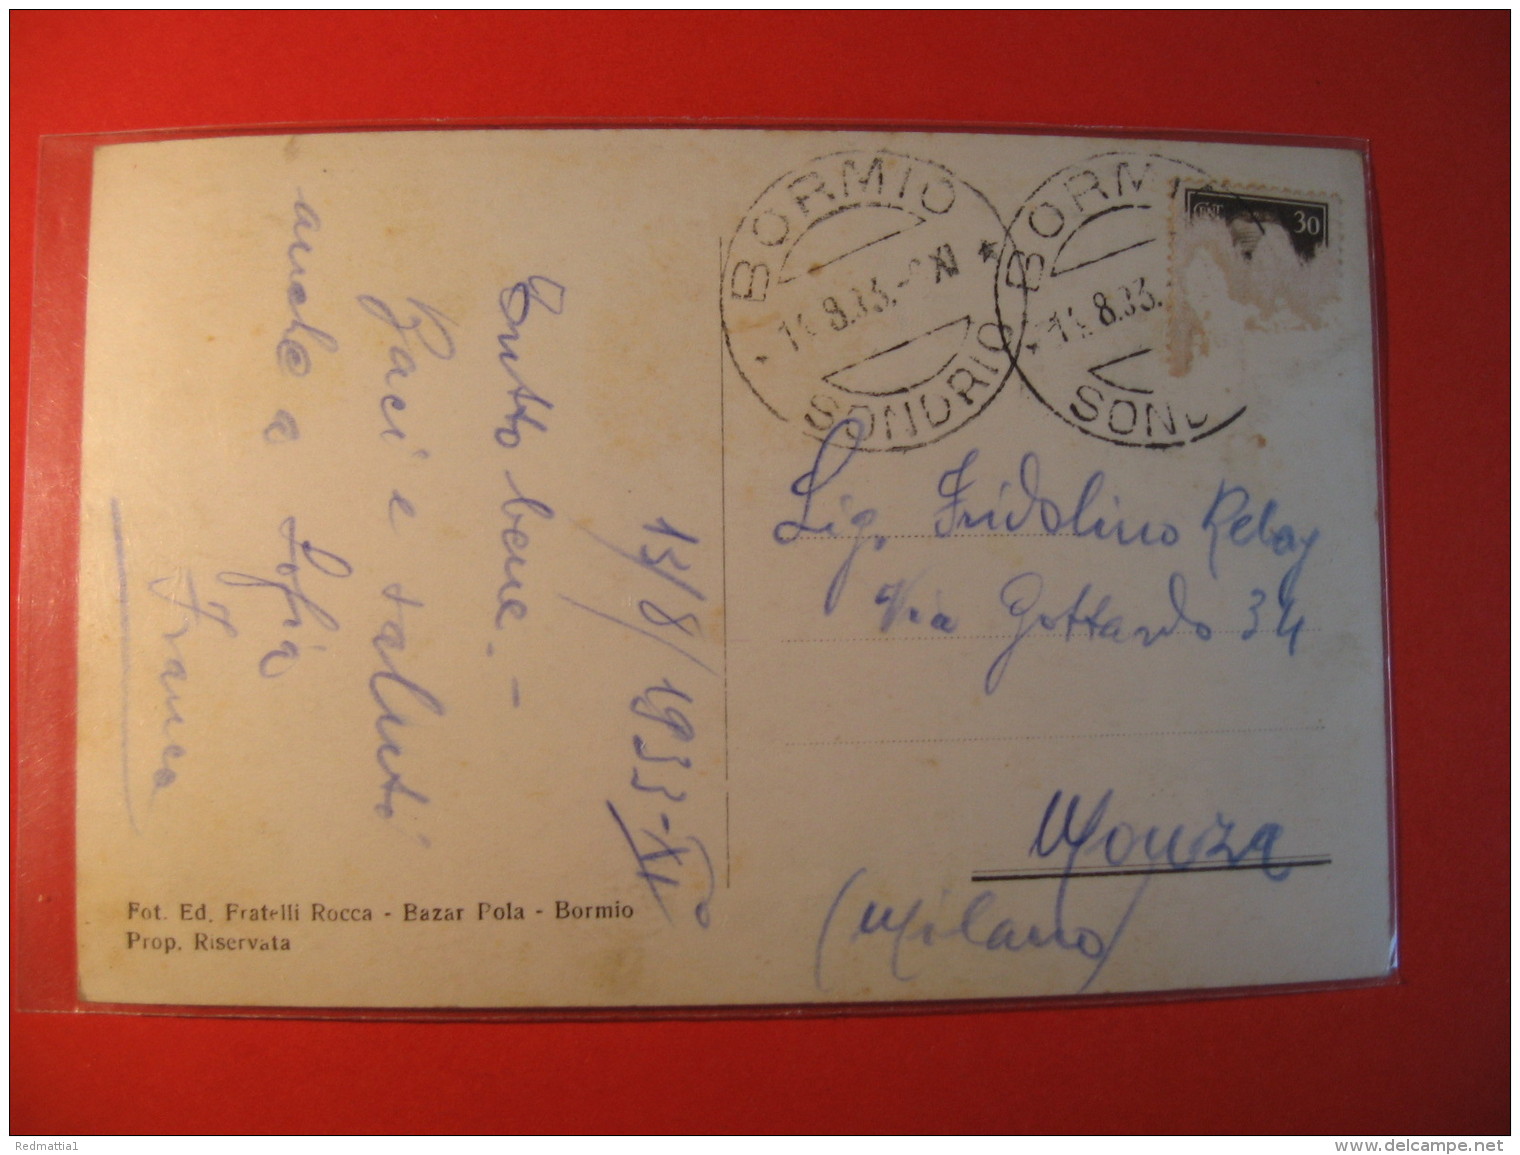 BORMIO
14.8.33. XI
SONDRIO
BORMI
14.8.33.
SOND
CENT. 30
15/8/1933-XI°
Tutto bene. -
Baci e saluti
anche a Sofia
Franca
Sig. Fridolino Rebay
Via Gottardo 34
Monza
(Milano)
Fot. Ed. Fratelli Rocca - Bazar Pola - Bormio
Prop. Riservata
Redmattia1
www.delcampe.net